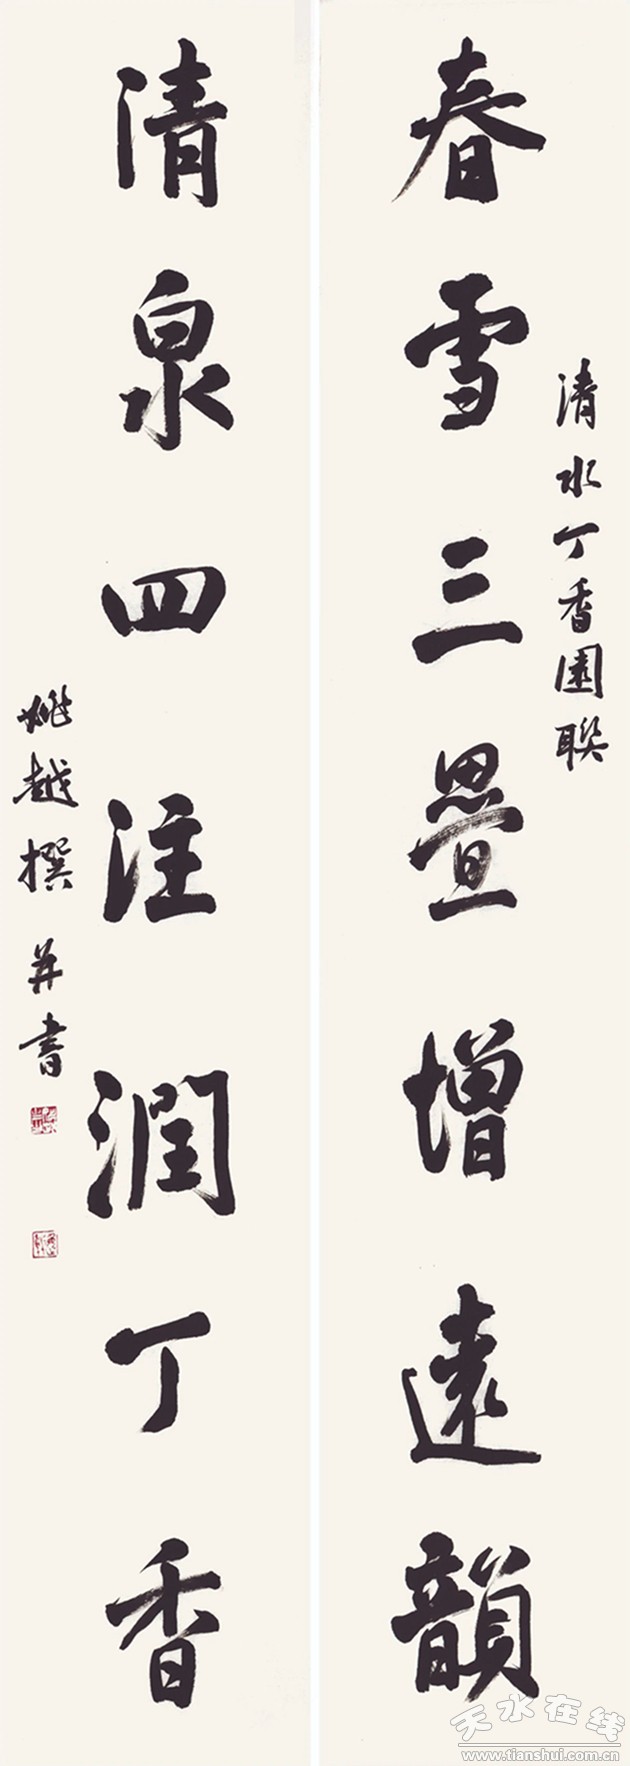 清水丁香園联
春雪三疊增遠韻
清泉四注潤丁香
姚越撰并書
天水在线
www.tianshui.com.cn